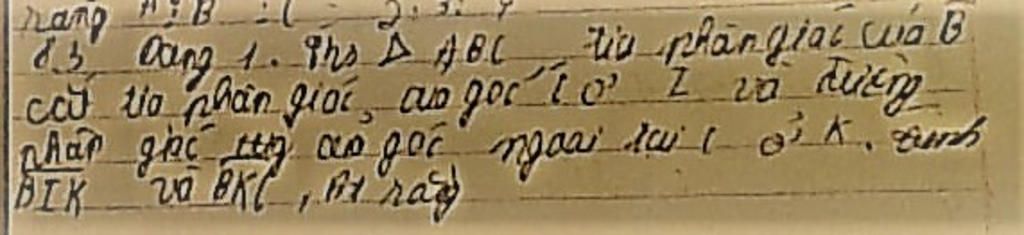 rằng A : B : C = 2 : 3 : 4
d.3 Dạng 1. Cho Δ ABC tia phân giác của B
cắt tia phân giác của góc C ở I và đường
phân giác của góc ngoài tại C ở K. Tính
BIK và BKC, Bt rằng